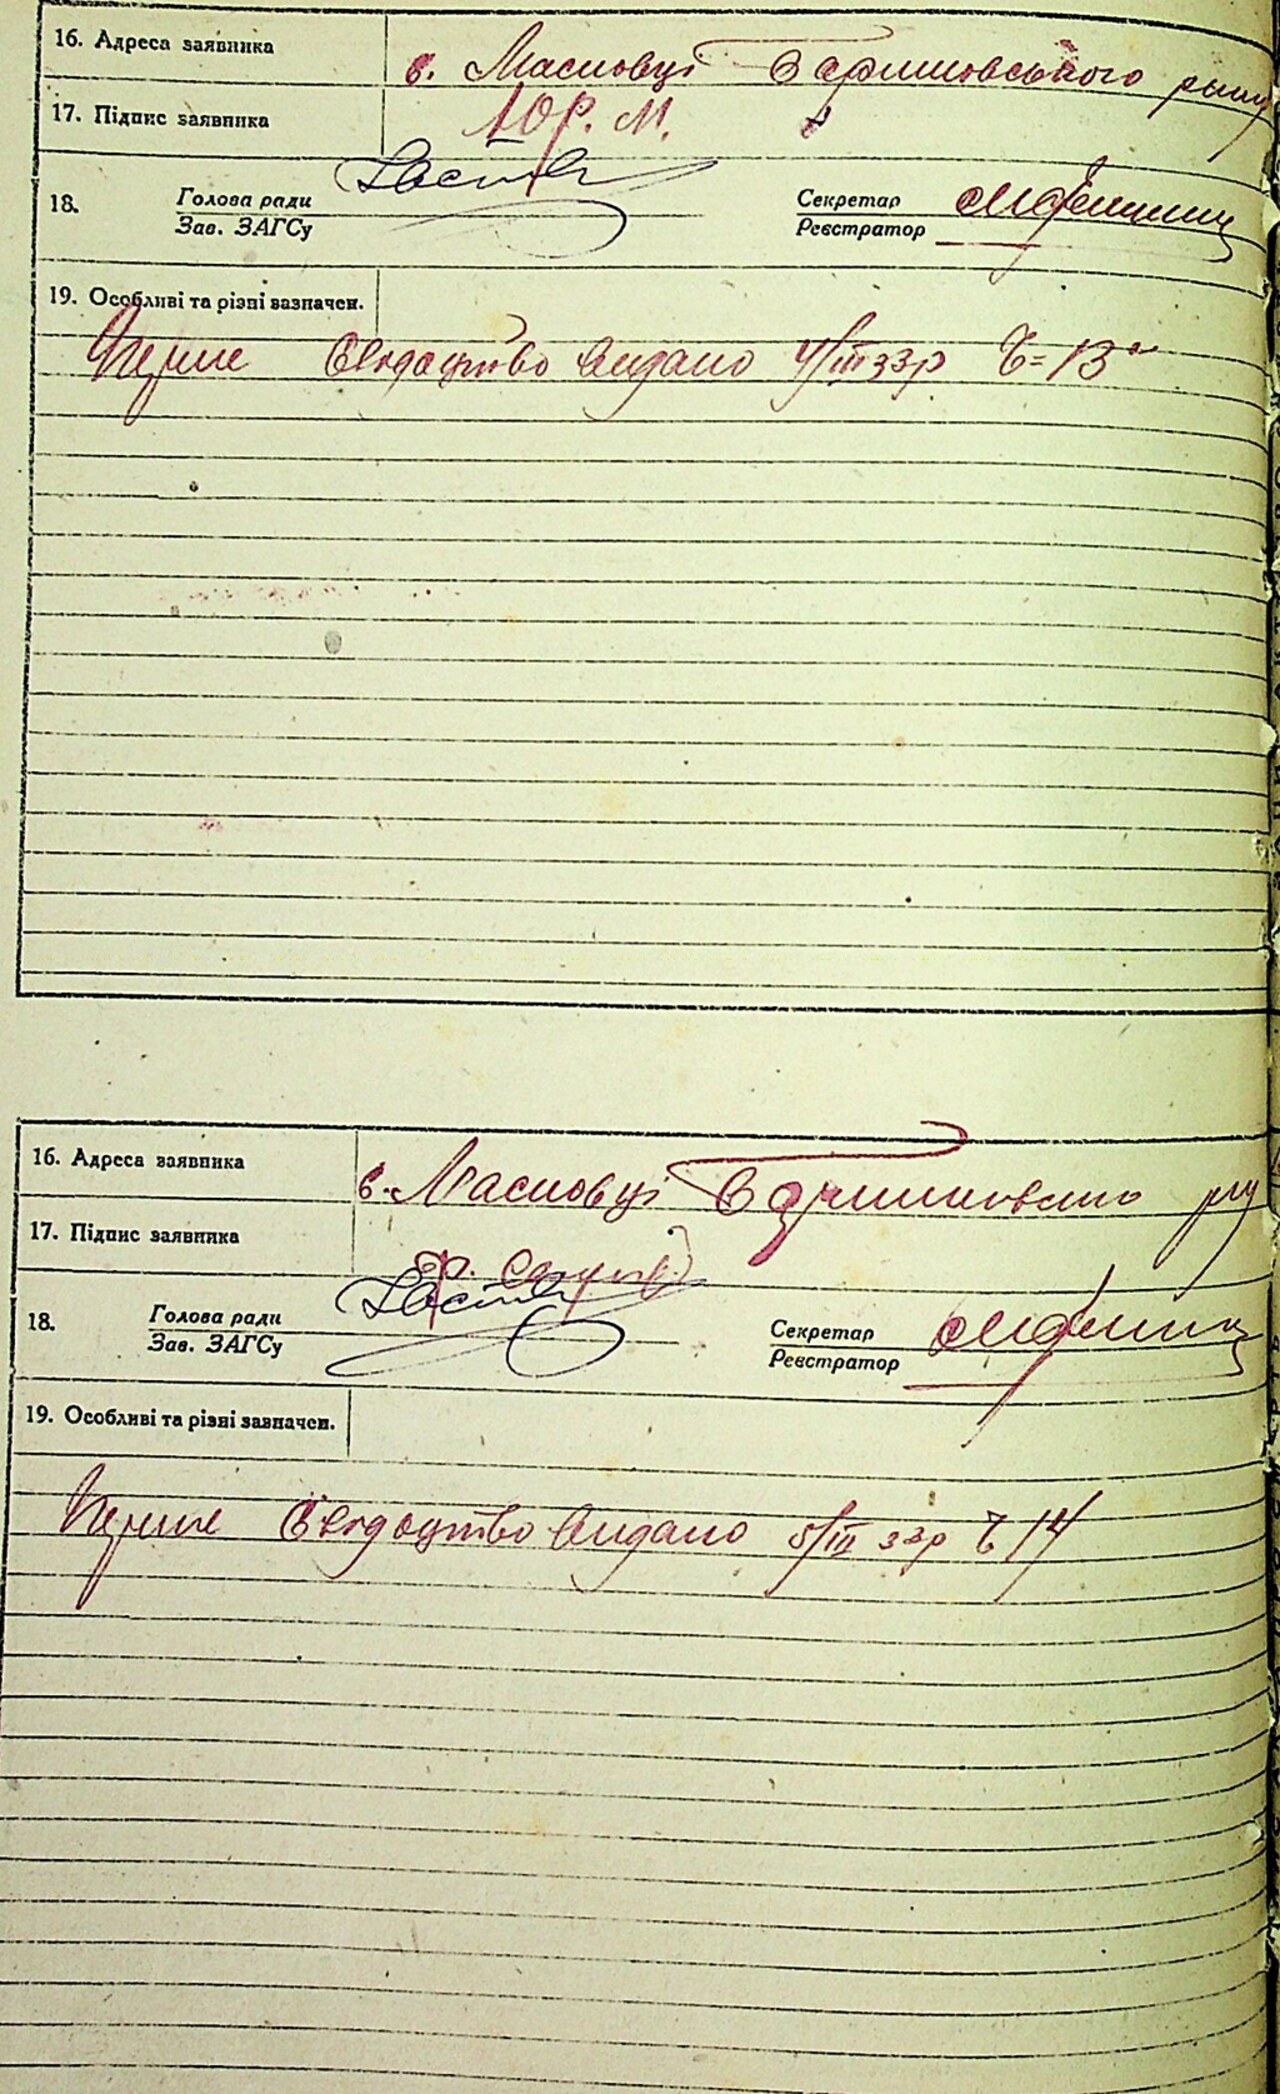 16. Адреса заявника с. Масковці Баришовського р-ну
17. Підпис заявника Юр. М.
18. Голова ради Секретар
Зав. ЗАГСу Реєстратор
19. Особливі та різні зазначен.
Перше Свідоцтво видано 4/III 33р Ч=13
16. Адреса заявника с. Масковці Баришовського р-ну
17. Підпис заявника
18. Голова ради Секретар
Зав. ЗАГСу Реєстратор
19. Особливі та різні зазначен.
Перше Свідоцтво видано 5/III 33р Ч 14